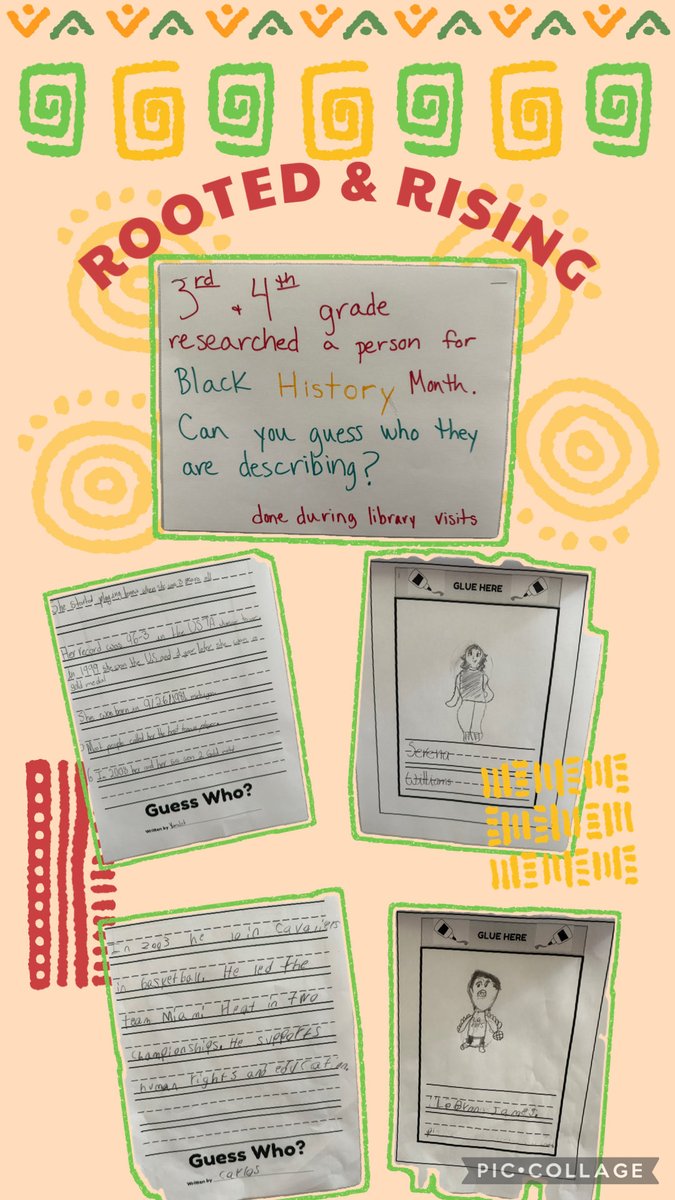 ROOTED & RISING
3rd + 4th grade
researched a person for
Black History Month.
Can you guess who they
are describing?
done during library visits
She started playing tennis when she was 3 years old
Her record was 46-3 in the USTA
In 1999 she won the US and 1 year later she won a
gold medal
She was born in 9/26/1981
Most people called her the best tennis player
6. In 2008 her and her sis won 2 Gold medal
Guess Who?
Written by
GLUE HERE
Serena
Williams
In 2003 he join Cavaliers
in basketball. He led the
team Miami Heat in two
championships. He supports
human rights and education
Guess Who?
Written by Carlos
GLUE HERE
LeBron James.
PIC•COLLAGE